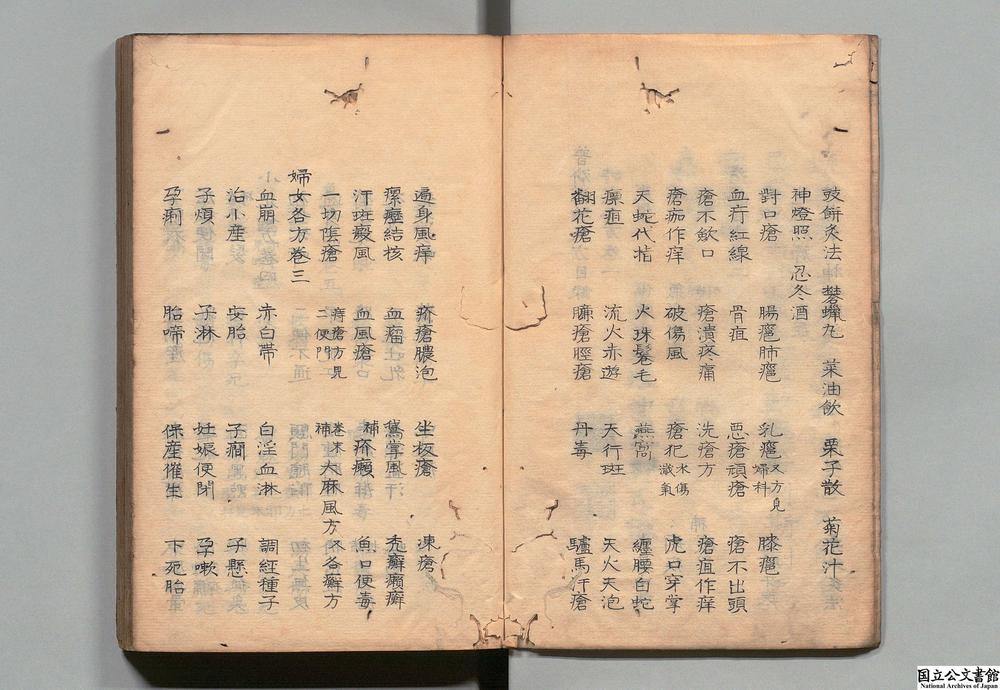 豉餅灸法 礬蠟丸 菜油飲 栗子散 菊花汁
神燈照 忍冬酒
對口瘡 腸癰肺癰 乳癰又方見婦科 膝癰
血疔紅線 骨疽 惡瘡頑瘡 瘡不出頭
瘡不歛口 瘡潰疼痛 洗瘡方 瘡疽作痒
瘡痂作痒 破傷風 瘡犯水傷 虎口穿掌
天蛇代指 火珠鬈毛 燕窩 纏腰白蛇
瘭疽 流火赤遊 天行斑 天火天泡
翻花瘡 臁瘡脛瘡 丹毒 驢馬汗瘡
遍身風痒 疥瘡膿泡 坐板瘡 凍瘡
瘰癧結核 血瘤 鵞掌風 禿癬癩癬
汗斑癜風 血風瘡 補疥癩 魚口便毒
一切陰瘡 痔瘡方見二便門 補卷末大麻風方 各癬方
婦女各方卷三
血崩 赤白帶 白淫血淋 調經種子
治小産 安胎 子癇 子懸
子煩 子淋 妊娠便閉 孕嗽
孕痢 胎啼 保産催生 下死胎
国立公文書館
National Archives of Japan